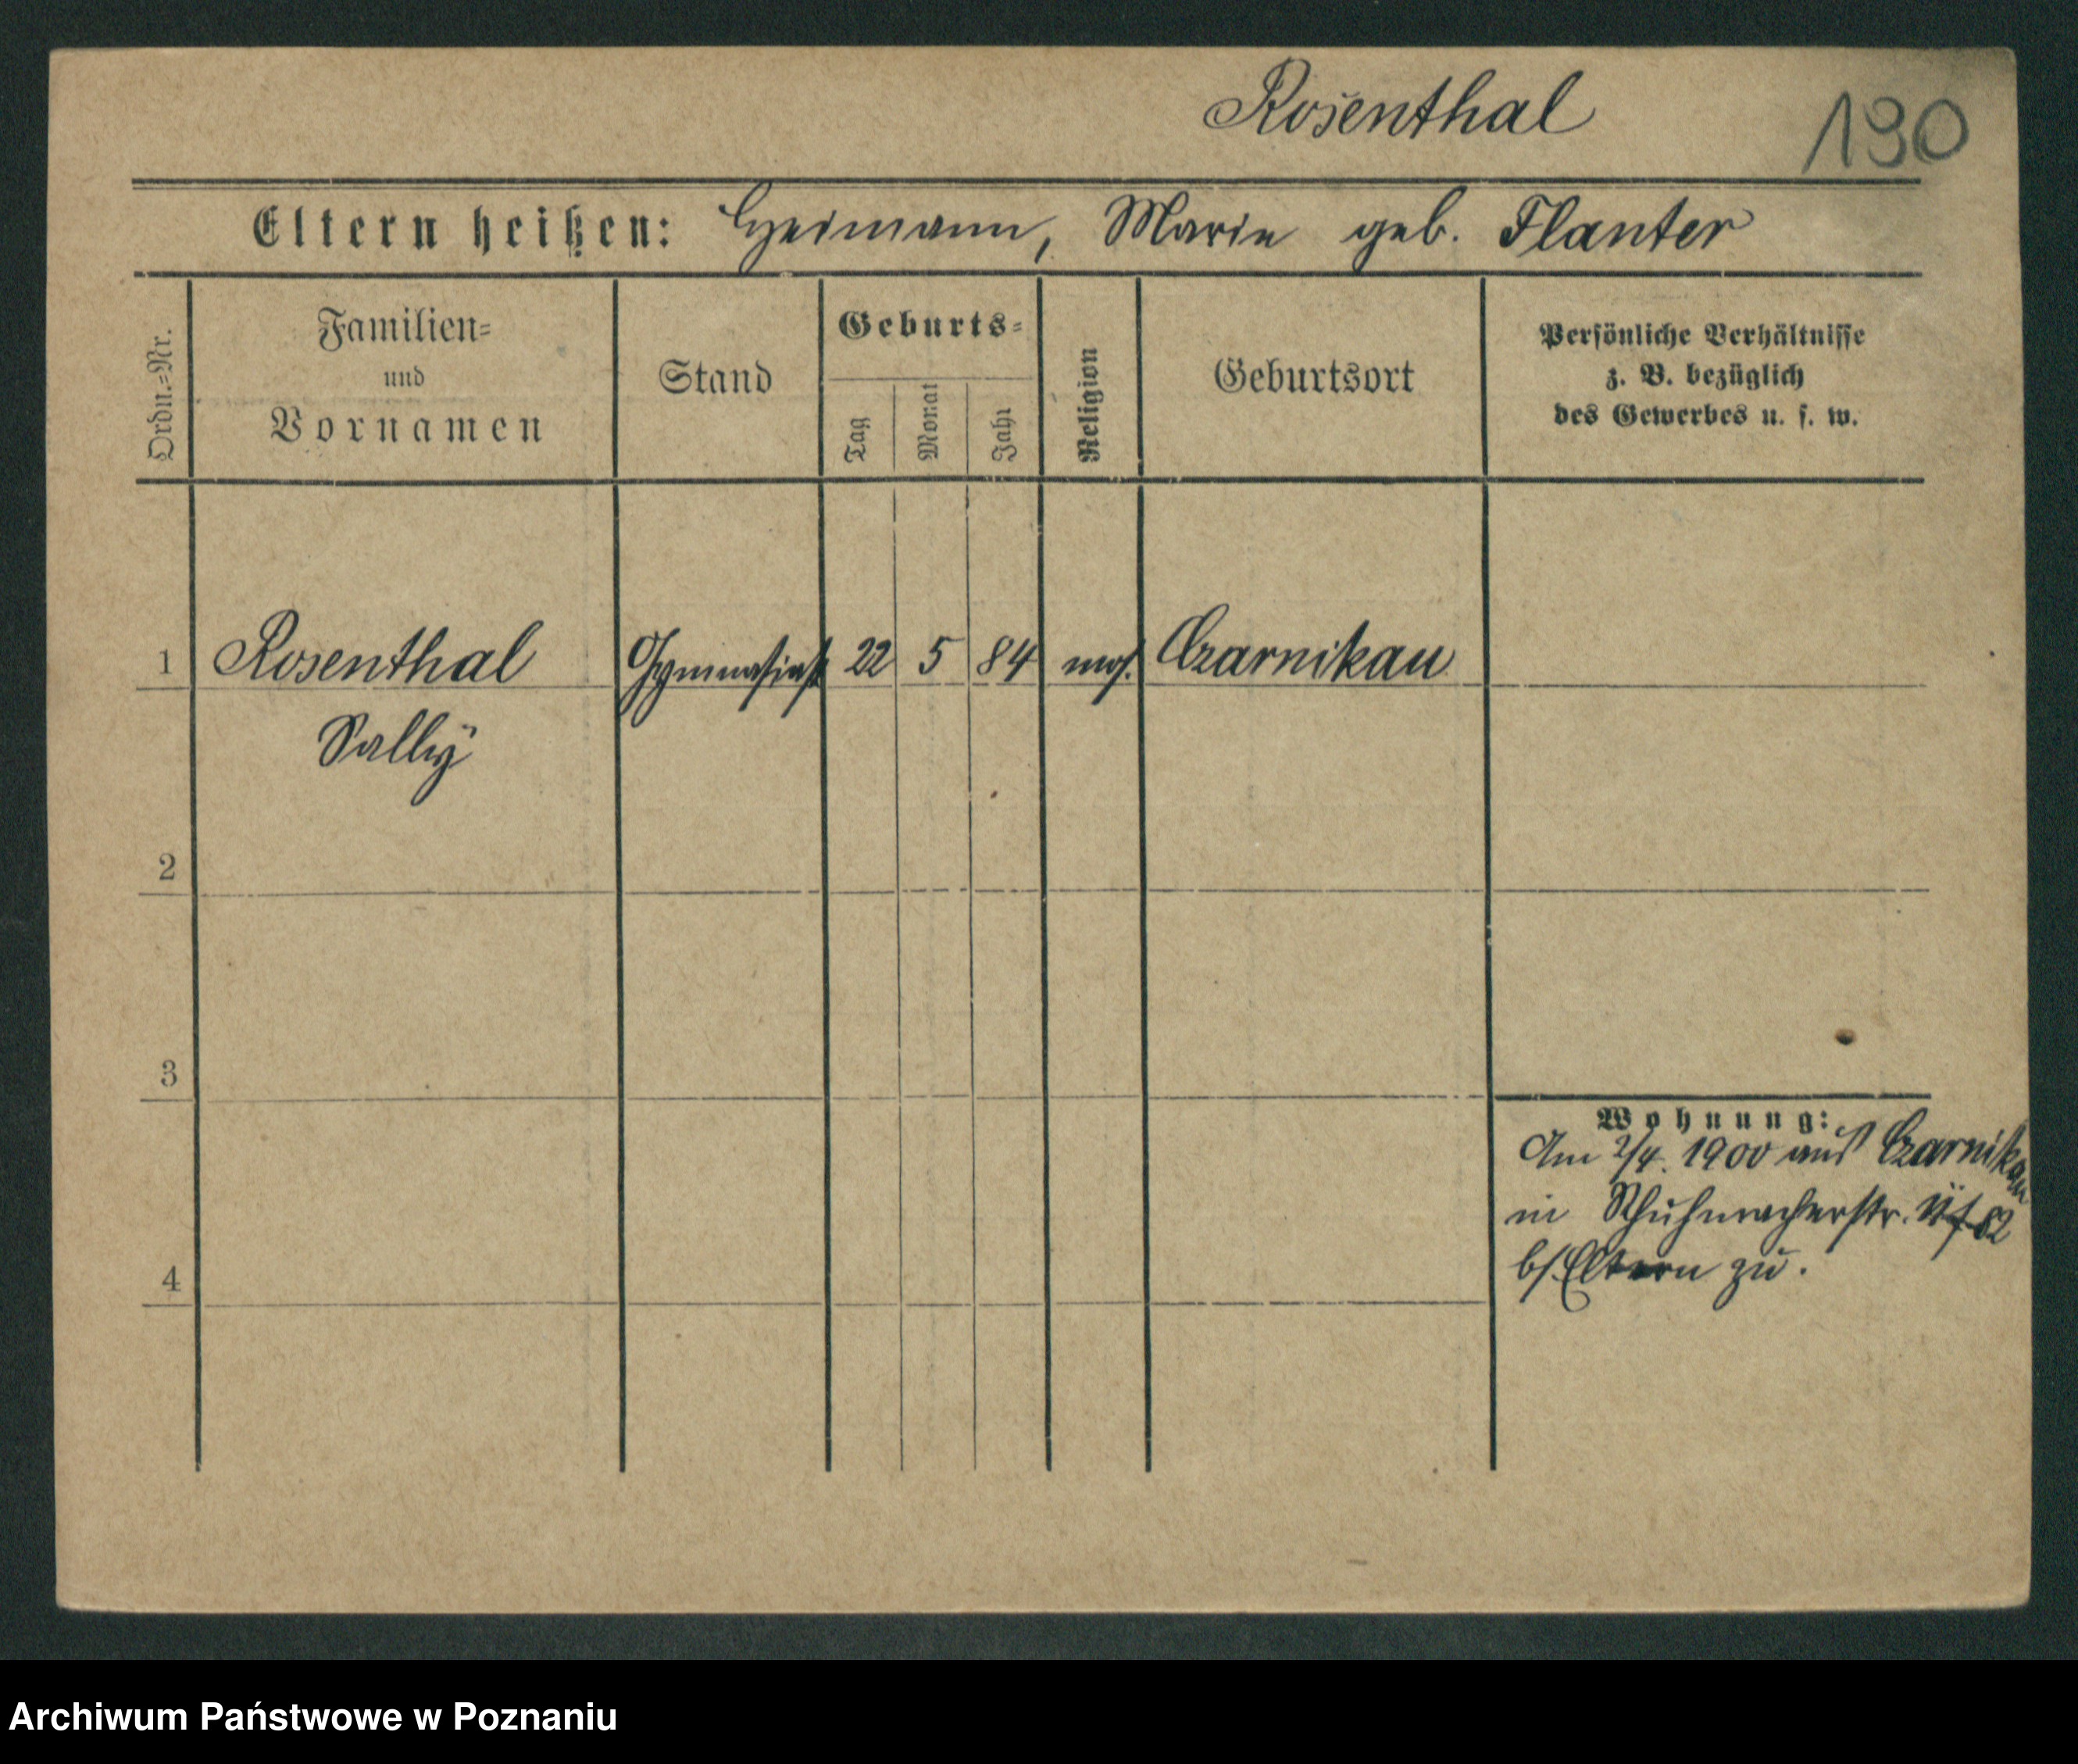 Rosenthal
190
Eltern heißen: Heimann, Marie geb. Flanter
Ordn.=Nr.
Familien=
und
Vornamen
Stand
Geburts=
Tag
Monat
Jahr
Religion
Geburtsort
Persönliche Verhältnisse
z. B. bezüglich
des Gewerbes u. s. w.
1 Rosenthal Gymnasiast 22 5 84 mos. Czarnikau
Sally
2
3
Wohnung:
Am 2/4. 1900 aus Czarnikau
in Schuhmacherstr. 82
4
b/Eltern zu.
Archiwum Państwowe w Poznaniu